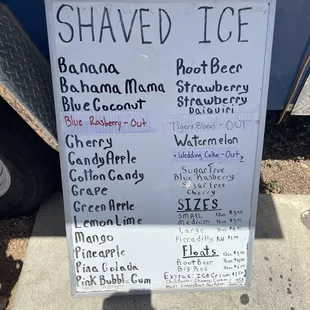 SHAVED ICE
Banana
Bahama Mama
Blue Coconut
Blue Rasberry - Out
Cherry
Candy Apple
Cotton Candy
Grape
Green Apple
Lemon Lime
Mango
Pineapple
Piña Colada
Pink Bubble Gum
Root Beer
Strawberry
Strawberry
Daiquiri
Tigers Blood - OUT
Watermelon
Wedding Cake - Out
Sugar Free
Blue Rasberry
Sugar Free
Cherry
SIZES
Small
Medium
Large
Piccadilly
Floats
Root Beer
Big Red
Extras: Ice Cream